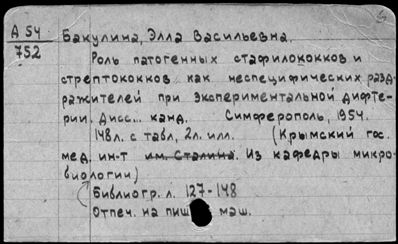 А 54
752
Бакулина, Элла Васильевна.
Роль патогенных стафилококков и
стрептококков как неспецифических разд-
ражителей при экспериментальной дифте-
рии. Дисс... канд. Симферополь, 1954.
148л. с табл, 2л. илл. (Крымский гос.
мед. ин-т им. Сталина. Из кафедры микро-
биологии)
Библиогр. л. 127-148
Отпеч. на пиш маш.